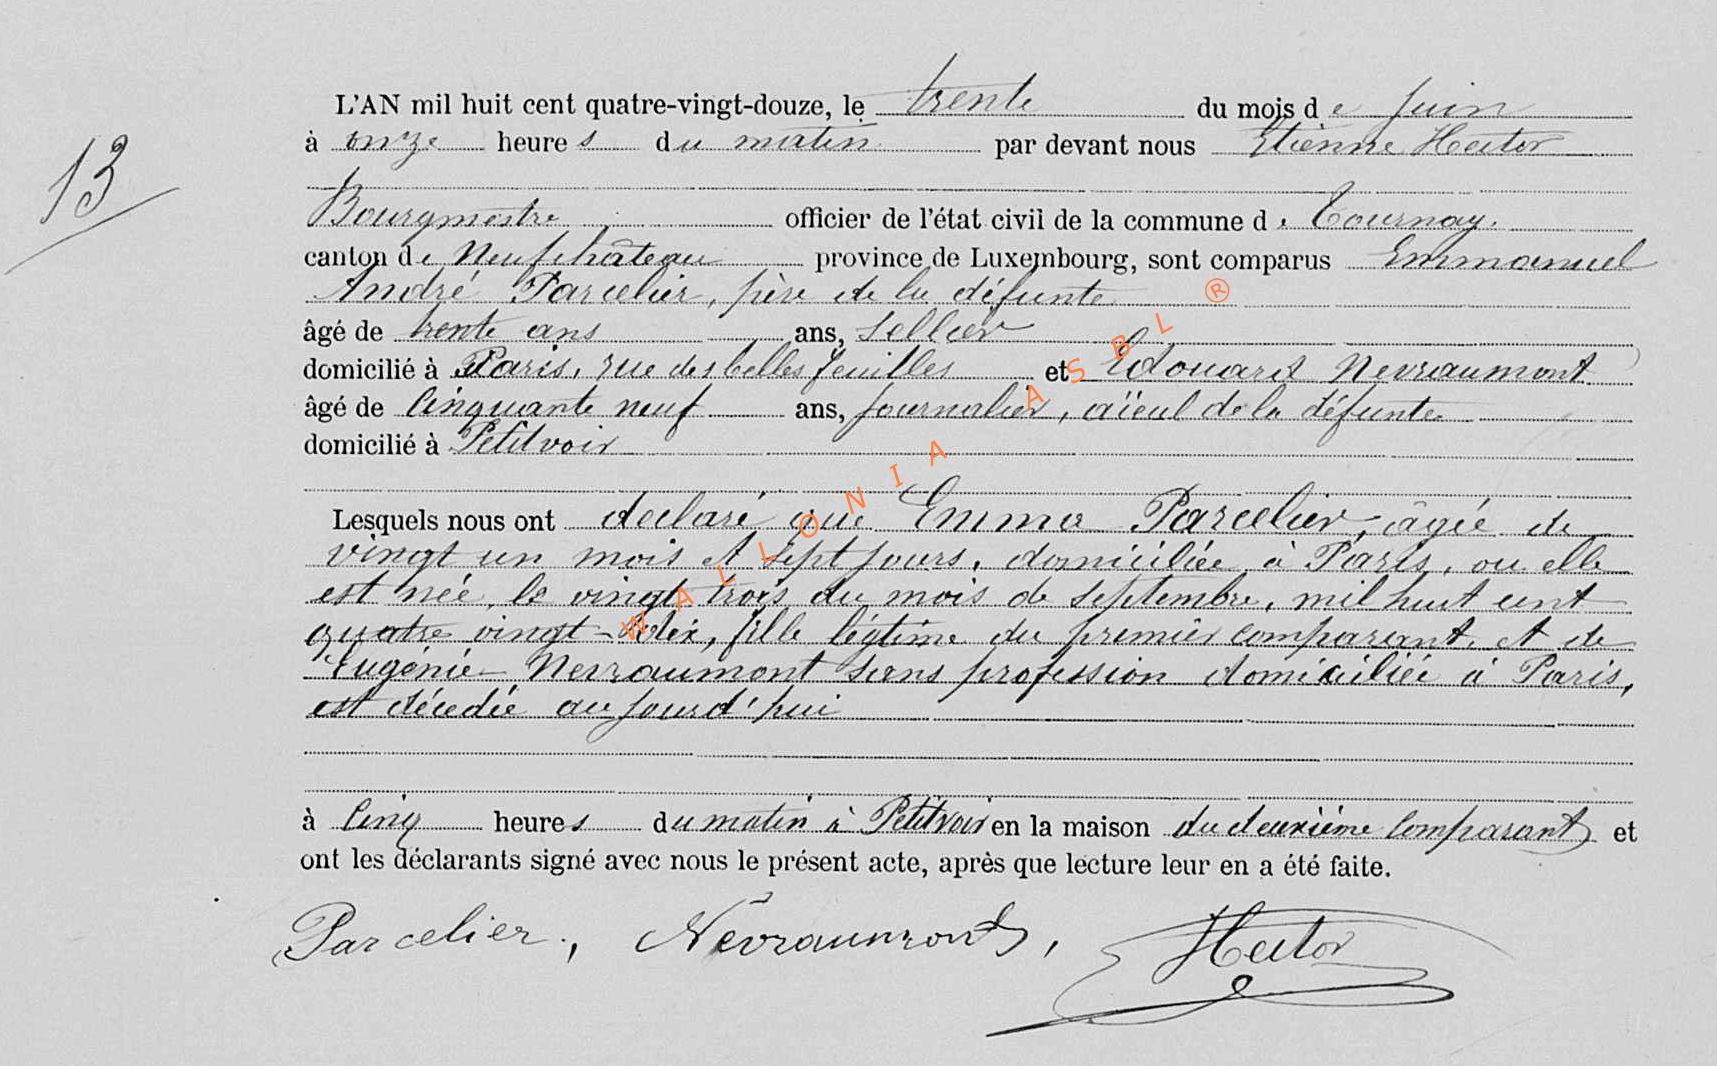 13
L'AN mil huit cent quatre-vingt-douze, le trente du mois de Juin
à onze heures du matin par devant nous Etienne Hector
Bourgmestre officier de l'état civil de la commune de Tournay.
canton de Neufchâteau province de Luxembourg, sont comparus Emmanuel
André Parcelier, père de la défunte
âgé de trente ans ans, sellier
domicilié à Paris, rue des belles feuilles et Edouard Nevraumont
âgé de cinquante neuf ans, journalier, aïeul de la défunte
domicilié à Petitvoir
Lesquels nous ont declaré que Emma Parcelier, âgée de
vingt un mois et sept jours, domiciliée à Paris, ou elle
est née, le vingt trois du mois de septembre, mil huit cent
quatre vingt-dix, fille légitime du premier comparant, et de
Eugénie Nevraumont sans profession domiciliée à Paris,
est décédée aujourd'hui
à cinq heures du matin à Petitvoir en la maison du deuxième comparant et
ont les déclarants signé avec nous le présent acte, après que lecture leur en a été faite.
Parcelier, Névraumont, Hector
WALLONIA ASBL ®